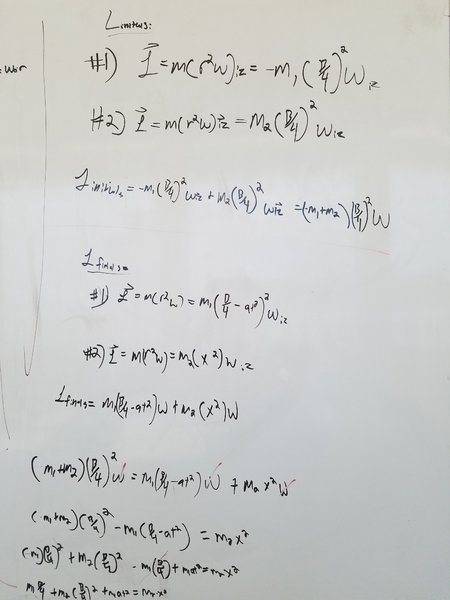 wr
L initials:
#1) L⃗ = m(r²w)iz = -m₁(D/4)²w iz
#2) L⃗ = m(r²w)iz = m₂(D/4)²w iz
L initials = -m₁(D/4)²w iz + m₂(D/4)²w iz = (-m₁+m₂)(D/4)²w
L finals =
#1) L⃗ = m(r²w) = m₁(D/4 - at²)²w iz
#2) L⃗ = m(r²w) = m₂(x²)w iz
L finals = m₁(D/4 - at²)w + m₂(x²)w
(-m₁+m₂)(D/4)²w = m₁(D/4 - at²)w + m₂x²w
(-m₁+m₂)(D/4)² - m₁(D/4 - at²) = m₂x²
(-m₁)(D/4)² + m₂(D/4)² - m₁(D/4) + m₁at² = m₂x²